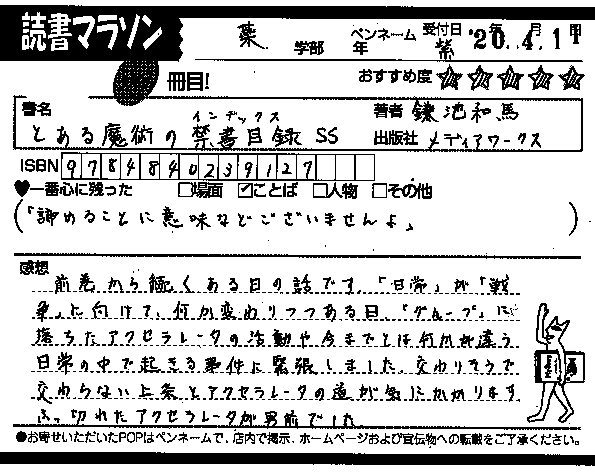 読書マラソン
冊目!
薬 学部 年 ペンネーム 紫 受付日 '20年4月1日
おすすめ度 ☆☆☆☆☆
書名 とある魔術の禁書目録 SS
インデックス
著者 鎌池和馬
出版社 メディアワークス
ISBN 9784840239127
♥一番心に残った □場面 ☑ことば □人物 □その他
(「諦めることに意味などございませんよ」)
感想
前巻から続くある日の話です。「日常」が「戦
争」に向けて、何か変わりつつある日。「グループ」に
落ちたアクセラレータの活動や今までとは何かが違う
日常の中で起きる事件に緊張しました。交わりそうで
交わらない上条とアクセラレータの道が気にかかります。
ふっ切れたアクセラレータが男前でした
●お寄せいただいたPOPはペンネームで、店内で掲示、ホームページおよび宣伝物への転載をご了承ください。